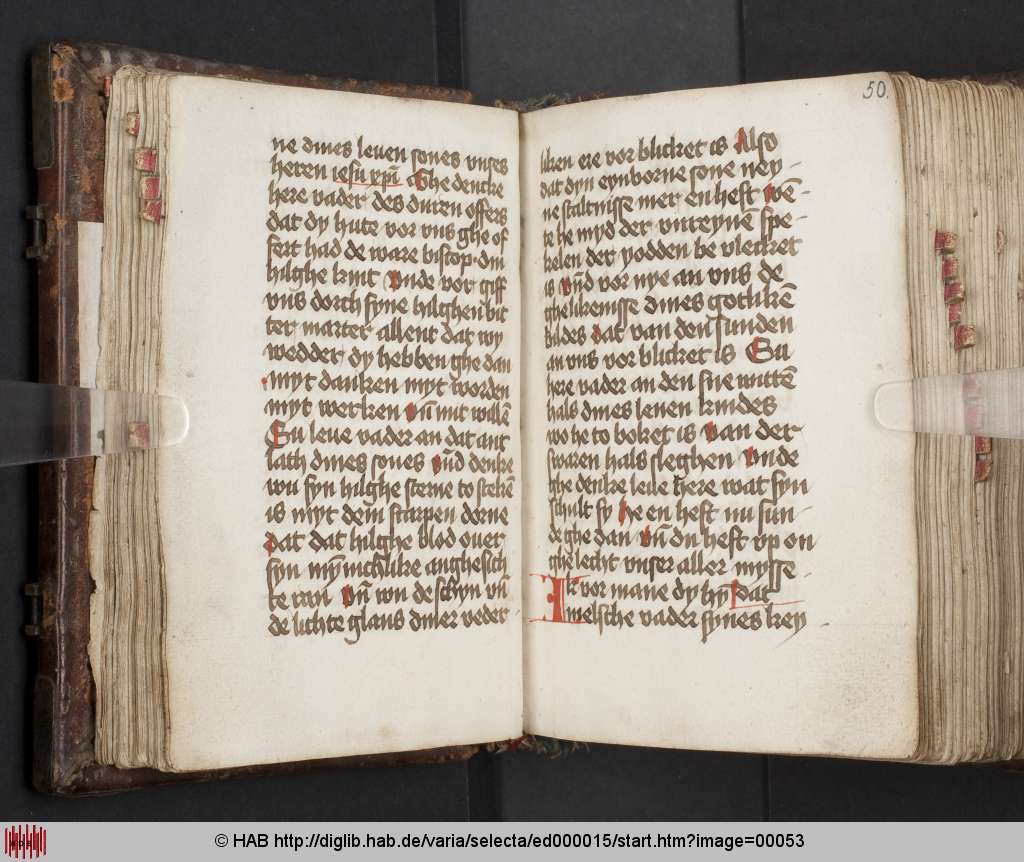 ne dines leuen sones vnses
heren iesu xpī Ghe dencke
here vader des duren offers
dat dy hute vor vns ghe of
fert had de ware biscop din
hilghe kint vnde vor giff
vns dorch syne hilghen bit
ter marter allent dat wy
wedder dy hebben ghe dan
myt danken myt worden
myt werken vn̄ mit willē
Su leue vader an dat ant
lath dines sones vn̄d denke
wu syn hilghe sterne to stekē
is myt dem scarpen dorne
dat dat hilghe blod ouer
syn mȳnichlike anghesich
te ran vn̄ wu de schyn vn̄
de lichte glans diner veder
50.
liken ere vor blicket is Also
dat dyn eynborne sone ney
ne staltnisse mer en heft wē
te he myd der vnreynē spe
kelen der yodden be vlecket
is vn̄d vor nye an vns de
ghelikenisse dines gotlikē
bildes dat van den sunden
an vns vor blicket is Su
here vader an den sne wittē
hals dines leuen kindes
wo he to boket is van der
swaren hals sleghen vnde
ghe denke leue here wat syn
schult sy he en heft nu sun
de ghe dan vn̄ du heft vp on
ghe lecht vnser aller mysse
Ik vor mane dy hȳ dat
welsche vader synes key
© HAB http://diglib.hab.de/varia/selecta/ed000015/start.htm?image=00053